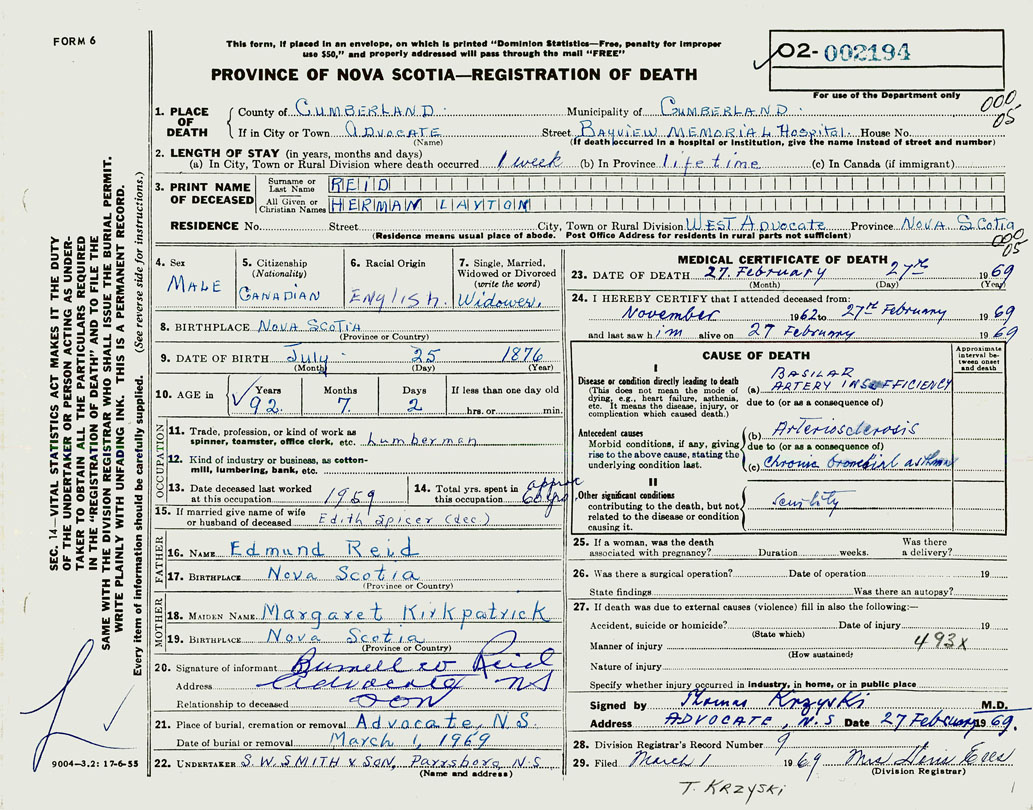 FORM 6
This form, if placed in an envelope, on which is printed "Dominion Statistics—Free, penalty for improper
use $50," and properly addressed will pass through the mail "FREE"
PROVINCE OF NOVA SCOTIA—REGISTRATION OF DEATH
02-002194
For use of the Department only
000
05
1. PLACE OF DEATH
County of CUMBERLAND. Municipality of CUMBERLAND.
If in City or Town ADVOCATE Street BAYVIEW MEMORIAL HOSPITAL. House No.
(Name) (If death occurred in a hospital or institution, give the name instead of street and number)
2. LENGTH OF STAY (in years, months and days)
(a) In City, Town or Rural Division where death occurred 1 week (b) In Province lifetime (c) In Canada (if immigrant)
3. PRINT NAME OF DECEASED
Surname or Last Name REID
All Given or Christian Names HERMAN LAYTON
RESIDENCE No. Street City, Town or Rural Division WEST ADVOCATE Province NOVA SCOTIA
(Residence means usual place of abode. Post Office Address for residents in rural parts not sufficient)
000
05
4. Sex MALE
5. Citizenship (Nationality) CANADIAN
6. Racial Origin English.
7. Single, Married, Widowed or Divorced (write the word) Widower.
8. BIRTHPLACE NOVA SCOTIA
(Province or Country)
9. DATE OF BIRTH July 25 1876
(Month) (Day) (Year)
10. AGE in Years 92. Months 7. Days 2 If less than one day old hrs. or min.
OCCUPATION
11. Trade, profession, or kind of work as spinner, teamster, office clerk, etc. Lumberman
12. Kind of industry or business, as cotton-mill, lumbering, bank, etc.
13. Date deceased last worked at this occupation 1959
14. Total yrs. spent in this occupation approx 60 yrs
15. If married give name of wife or husband of deceased Edith Spicer (dec.)
FATHER
16. NAME Edmund Reid
17. BIRTHPLACE Nova Scotia
(Province or Country)
MOTHER
18. MAIDEN NAME Margaret Kirkpatrick
19. BIRTHPLACE Nova Scotia
(Province or Country)
20. Signature of informant Burnell W Reid
Address Advocate NS
Relationship to deceased SON
21. Place of burial, cremation or removal Advocate, N.S.
Date of burial or removal March 1, 1969
22. UNDERTAKER S.W. SMITH & SON, Parrsboro N.S.
(Name and address)
MEDICAL CERTIFICATE OF DEATH
23. DATE OF DEATH 27. February 27th 1969
(Month) (Day) (Year)
24. I HEREBY CERTIFY that I attended deceased from:
November 1962 to 27th February 1969
and last saw him alive on 27 February 1969
CAUSE OF DEATH
Approximate interval between onset and death
I
Disease or condition directly leading to death
(This does not mean the mode of dying, e.g., heart failure, asthenia, etc. It means the disease, injury, or complication which caused death.)
(a) BASILAR ARTERY INSUFFICIENCY
due to (or as a consequence of)
Antecedent causes
Morbid conditions, if any, giving rise to the above cause, stating the underlying condition last.
(b) Arteriosclerosis
due to (or as a consequence of)
(c) Chronic bronchial asthma
II
Other significant conditions contributing to the death, but not related to the disease or condition causing it.
Senility
25. If a woman, was the death associated with pregnancy? Duration weeks. Was there a delivery?
26. Was there a surgical operation? Date of operation 19
State findings Was there an autopsy?
27. If death was due to external causes (violence) fill in also the following:—
Accident, suicide or homicide? Date of injury 19
(State which)
Manner of injury 493X
(How sustained)
Nature of injury
Specify whether injury occurred in industry, in home, or in public place
Signed by Thomas Krzyski M.D.
Address ADVOCATE, N.S Date 27 February 1969.
28. Division Registrar's Record Number 9
29. Filed March 1 1969 Mrs Doris
(Division Registrar)
T. KRZYSKI
9004-3.2: 17-6-55
SEC. 14—VITAL STATISTICS ACT MAKES IT THE DUTY
OF THE UNDERTAKER OR PERSON ACTING AS UNDER-
TAKER TO OBTAIN ALL THE PARTICULARS REQUIRED
IN THE "REGISTRATION OF DEATH" AND TO FILE THE
SAME WITH THE DIVISION REGISTRAR WHO SHALL ISSUE THE BURIAL PERMIT.
WRITE PLAINLY WITH UNFADING INK. THIS IS A PERMANENT RECORD.
Every item of information should be carefully supplied. (See reverse side for instructions.)